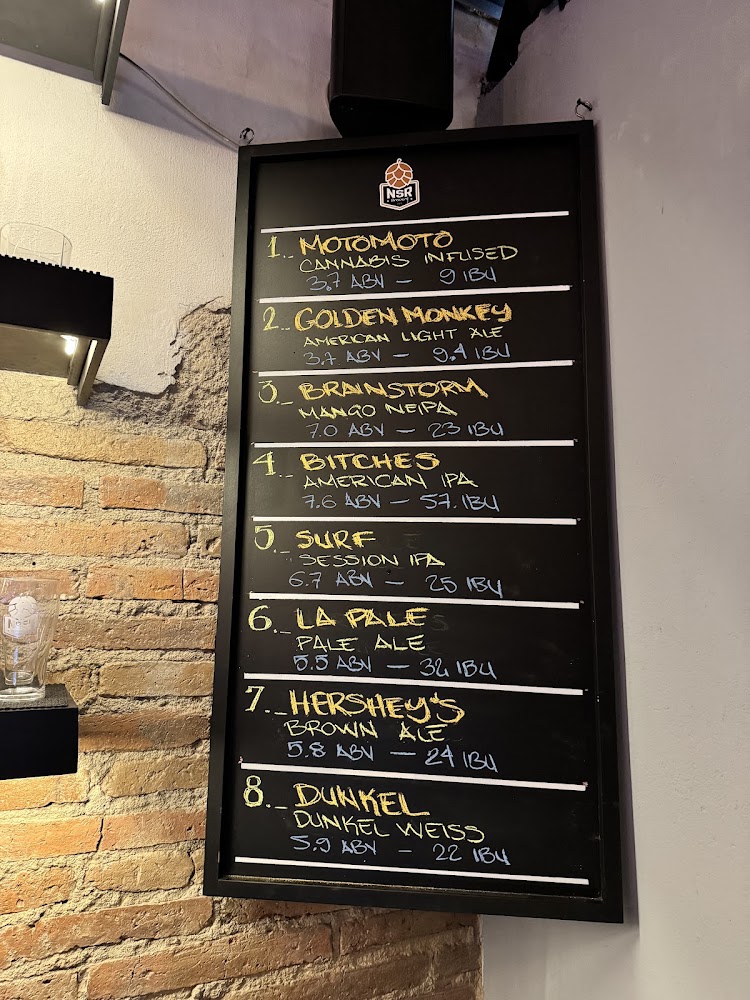 NSR
1.- MOTOMOTO
CANNABIS INFUSED
3.7 ABV — 9 IBU
2.- GOLDEN MONKEY
AMERICAN LIGHT ALE
3.7 ABV — 9.4 IBU
3.- BRAINSTORM
MANGO NEIPA
7.0 ABV — 23 IBU
4.- BITCHES
AMERICAN IPA
7.6 ABV — 57. IBU
5.- SURF
SESSION IPA
6.7 ABV — 25 IBU
6.- LA PALE
PALE ALE
5.5 ABV — 32 IBU
7.- HERSHEY'S
BROWN ALE
5.8 ABV — 24 IBU
8.- DUNKEL
DUNKEL WEISS
5.9 ABV — 22 IBU